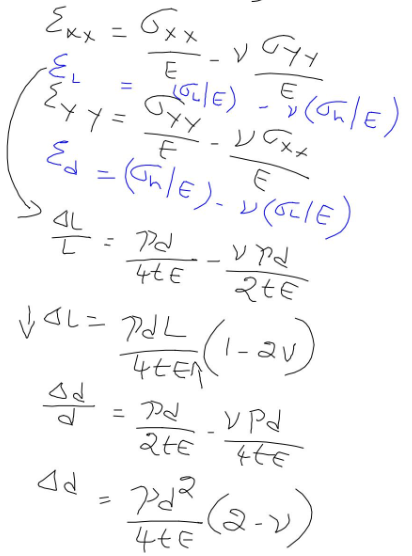 εxx = σxx/E - ν σyy/E
εL = (σL/E) - ν(σh/E)
εyy = σyy/E - ν σxx/E
εd = (σh/E) - ν(σL/E)
ΔL/L = pd/4tE - νpd/2tE
↓ ΔL = pdL/4tE↑ (1 - 2ν)
Δd/d = pd/2tE - νpd/4tE
Δd = pd²/4tE (2 - ν)